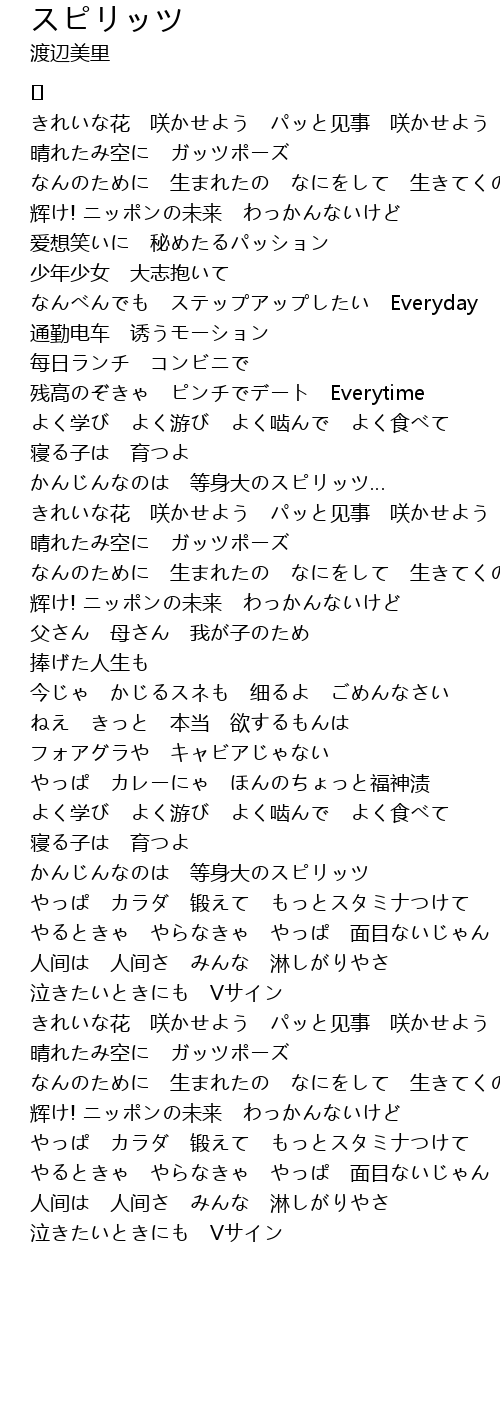 スピリッツ
渡辺美里
[]
きれいな花　咲かせよう　パッと见事　咲かせよう
晴れたみ空に　ガッツポーズ
なんのために　生まれたの　なにをして　生きてくの
辉け! ニッポンの未来　わっかんないけど
爱想笑いに　秘めたるパッション
少年少女　大志抱いて
なんべんでも　ステップアップしたい　Everyday
通勤电车　诱うモーション
毎日ランチ　コンビニで
残高のぞきゃ　ピンチでデート　Everytime
よく学び　よく游び　よく啮んで　よく食べて
寝る子は　育つよ
かんじんなのは　等身大のスピリッツ…
きれいな花　咲かせよう　パッと见事　咲かせよう
晴れたみ空に　ガッツポーズ
なんのために　生まれたの　なにをして　生きてくの
辉け! ニッポンの未来　わっかんないけど
父さん　母さん　我が子のため
捧げた人生も
今じゃ　かじるスネも　细るよ　ごめんなさい
ねえ　きっと　本当　欲するもんは
フォアグラや　キャビアじゃない
やっぱ　カレーにゃ　ほんのちょっと福神渍
よく学び　よく游び　よく啮んで　よく食べて
寝る子は　育つよ
かんじんなのは　等身大のスピリッツ
やっぱ　カラダ　锻えて　もっとスタミナつけて
やるときゃ　やらなきゃ　やっぱ　面目ないじゃん
人间は　人间さ　みんな　淋しがりやさ
泣きたいときにも　Vサイン
きれいな花　咲かせよう　パッと见事　咲かせよう
晴れたみ空に　ガッツポーズ
なんのために　生まれたの　なにをして　生きてくの
辉け! ニッポンの未来　わっかんないけど
やっぱ　カラダ　锻えて　もっとスタミナつけて
やるときゃ　やらなきゃ　やっぱ　面目ないじゃん
人间は　人间さ　みんな　淋しがりやさ
泣きたいときにも　Vサイン